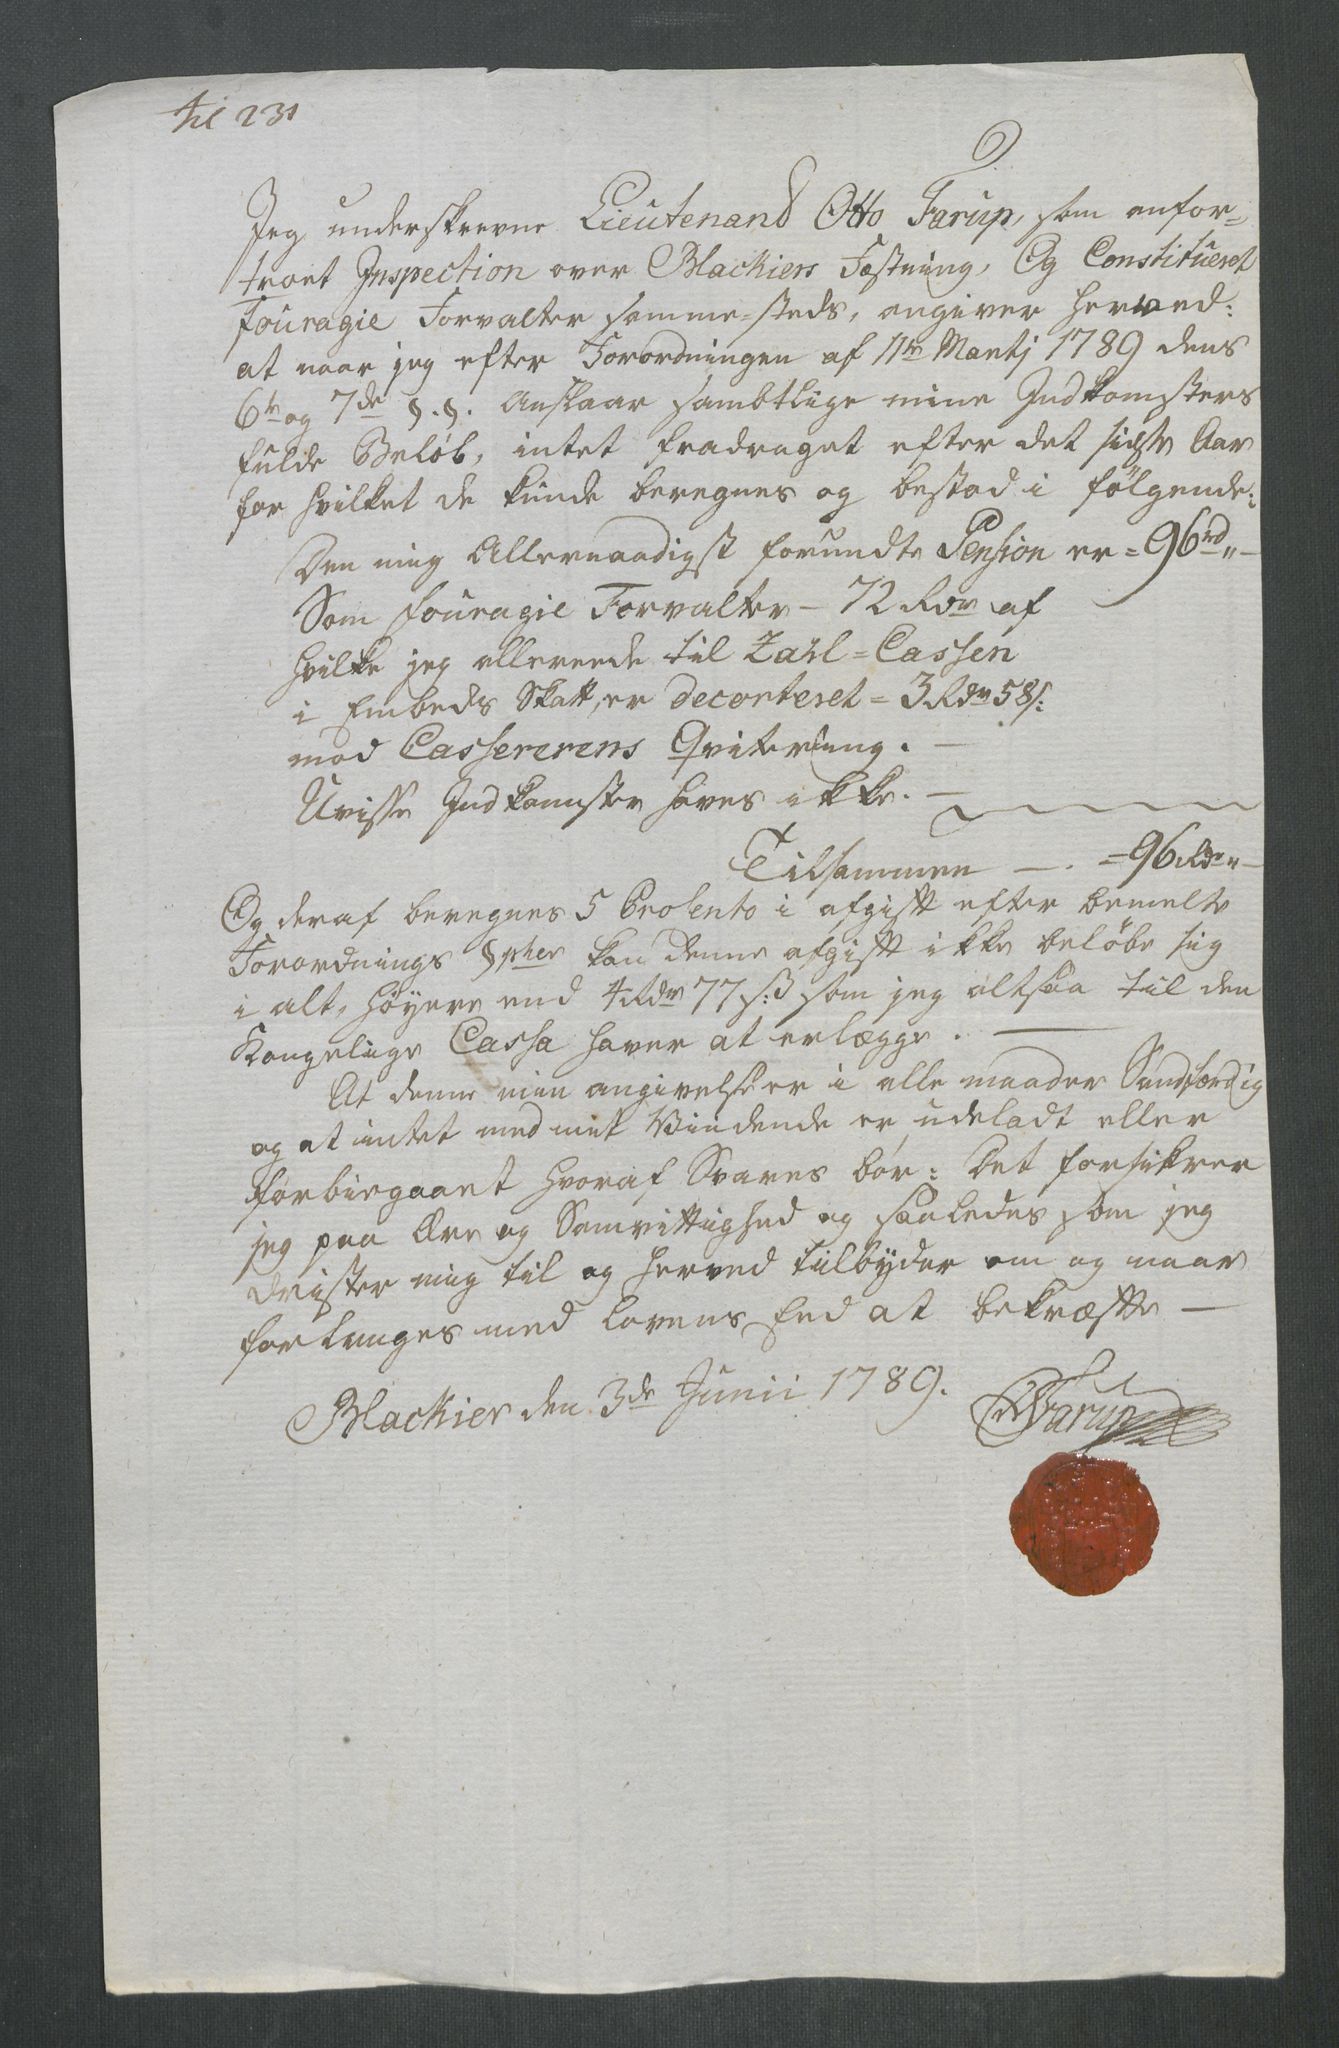 til 231
Jeg underskrevne Lieutenand Otto Farup, som anfor-
troet Inspection over Blackiers Fæstning, Og Constitueret
Fouragie Forvalter samme-steds, angiver herved:
at naar jeg efter Forordningen af 11te Martj 1789 dens
6te og 7de §.§. Anslaar samtlige mine Indkomsters
fulde Beløb, intet fradraget efter det sidste Aar
for hvilket de kunde beregnes og bestod i følgende:
Den mig Allernaadigst forundte Pension er = 96rd „ —
Som Fouragie Forvalter — 72 Rdr af
hvilke jeg allerede til Zahl=Cassen
i Embeds Skatt, er decorteret = 3 Rdr 58 s:
mod Cassererens Qvitering. —
Uvisse Indkomster haves ikke. —
Tilsammen — . = 96 Rdr „ —
Og deraf beregnes 5 ProCento i afgift efter bemelte
Forordnings §pher kan denne afgift ikke beløbe sig
i alt, høyere end 4 Rdr 77 s:ß som jeg altsaa til den
Kongelige Cassa haver at erlægge. —
At denne min angivelse er i alle maader Sandfærdig
og at intet med mit Vidende er udeladt eller
forbiegaaet hvoraf Svares bør: Det forsikrer
jeg paa Ære og Samvittighed og saaledes som jeg
drister mig til og herved tilbyder om og naar
forlanges med Lovens Eed at bekræfte —
Blackier den 3de Junii 1789.
Farup